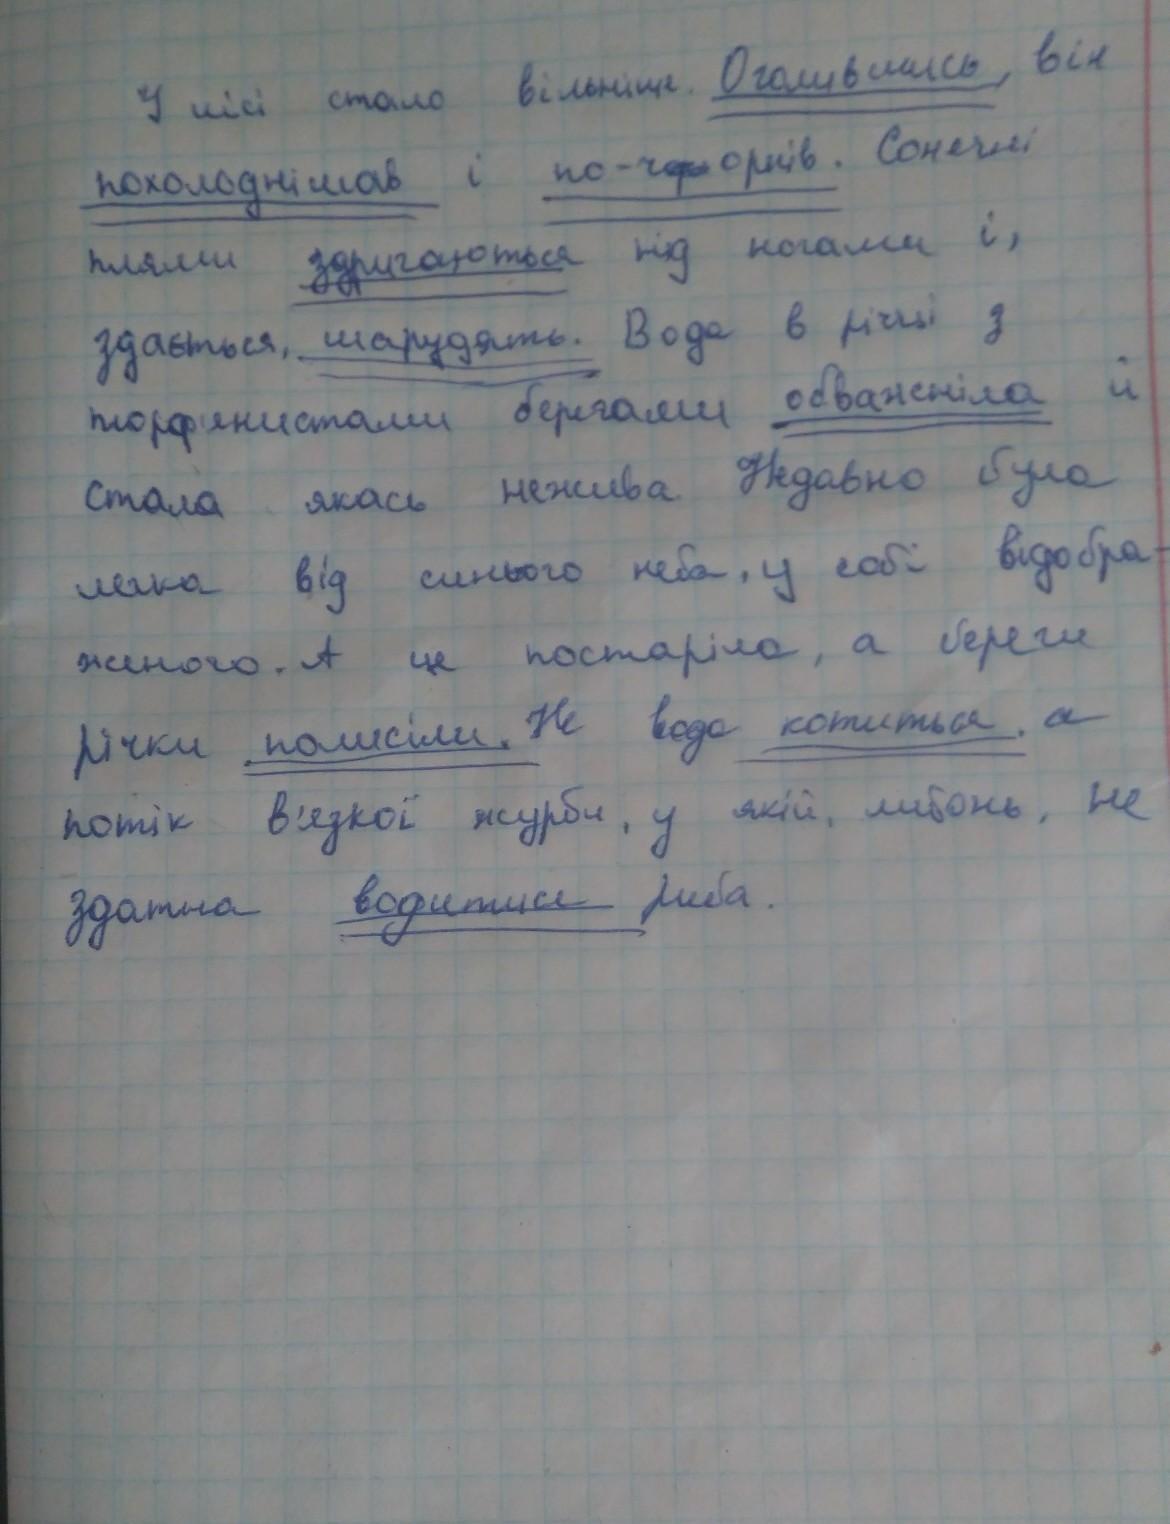 У лісі стало вільніще. Оголившись, він
похолоднішав і по-чорнів. Сонячні
плями здригаються під ногами і,
здається, шарудять. Вода в річці з
торф'янистами берегами обважніла й
стала якась нежива. Недавно була
легка від синього неба, у собі відобра-
женого. А це постаріла, а береги
річки полисіли. Не вода котиться, а
потік в'язкої журби, у якій, либонь, не
здатна водитися риба.